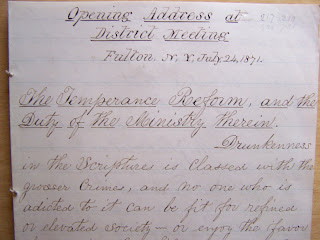 Opening Address at
District Meeting
Fulton N. Y. July 24, 1871.
The Temperance Reform, and the
Duty of the Ministry therein.
Drunkenness
in the Scriptures is classed with the
grosser crimes, and no one who is
adicted to it can be fit for refined
or elevated society — or enjoy the favor